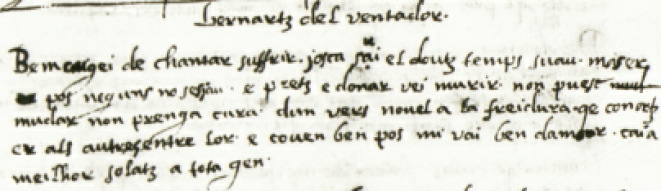 Bernartz del ventador.
Bem cugei de chantar suffrir. josca sai el doutz temps suau. mas er
pos neguns no sesjau. e pretz e donar vei murir. non puesc
mudar non prenga cura. dun vers novel a la freidura. qe conortz
er als autres entre lor. e coven ben pos mi vai ben damor. caia
meilhor solatz a tota gen.